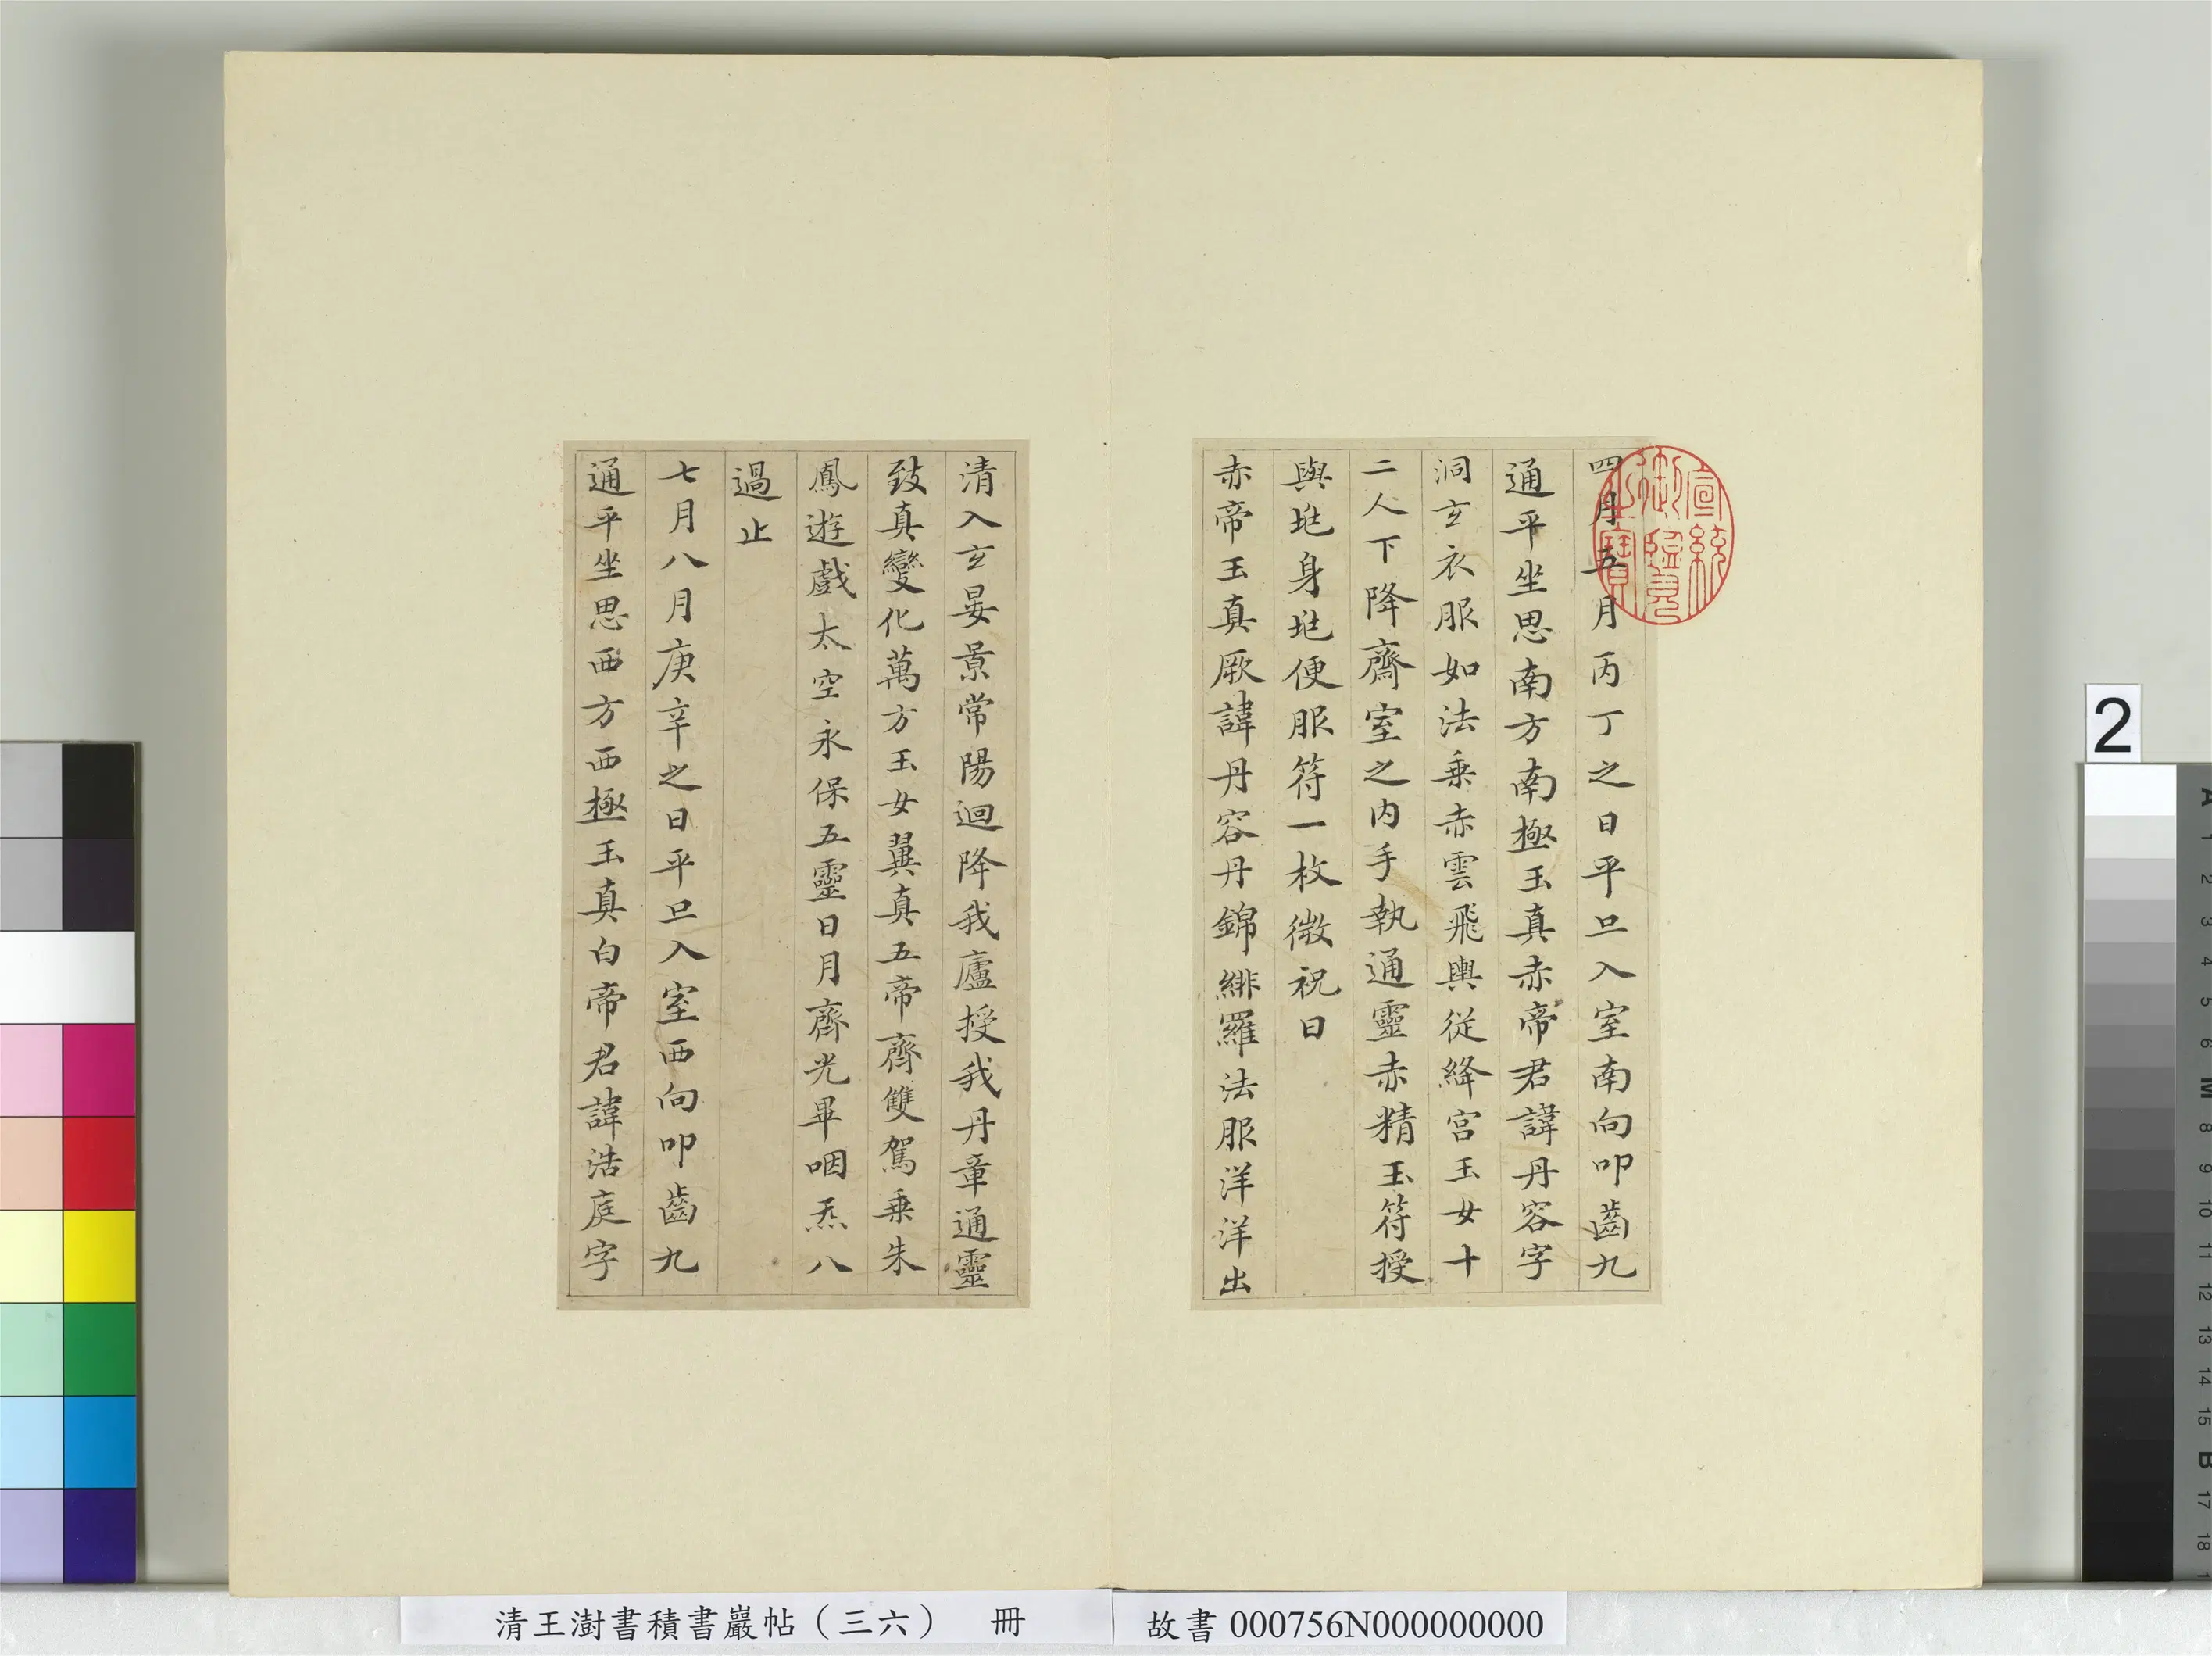 四月五月丙丁之日平旦入室南向叩齒九
通平坐思南方南極玉真赤帝君諱丹容字
洞玄衣服如法乗赤雲飛輿從絳宮玉女十
二人下降齋室之内手執通靈赤精玉符授
與兆身兆便服符一枚微祝曰
赤帝玉真厥諱丹容丹錦緋羅法服洋洋出
清入玄晏景常陽迴降我廬授我丹章通靈
致真變化萬方玉女翼真五帝齊雙駕乗朱
鳳遊戲太空永保五靈日月齊光畢咽炁八
過止
七月八月庚辛之日平旦入室西向叩齒九
通平坐思西方西極玉真白帝君諱浩庭字
宣統御覽之寶
清王澍書積書巖帖（三六） 冊
故書 000756N000000000
2
A
1
2
3
4
5
6
M
8
9
10
11
12
13
14
15
B
17
18